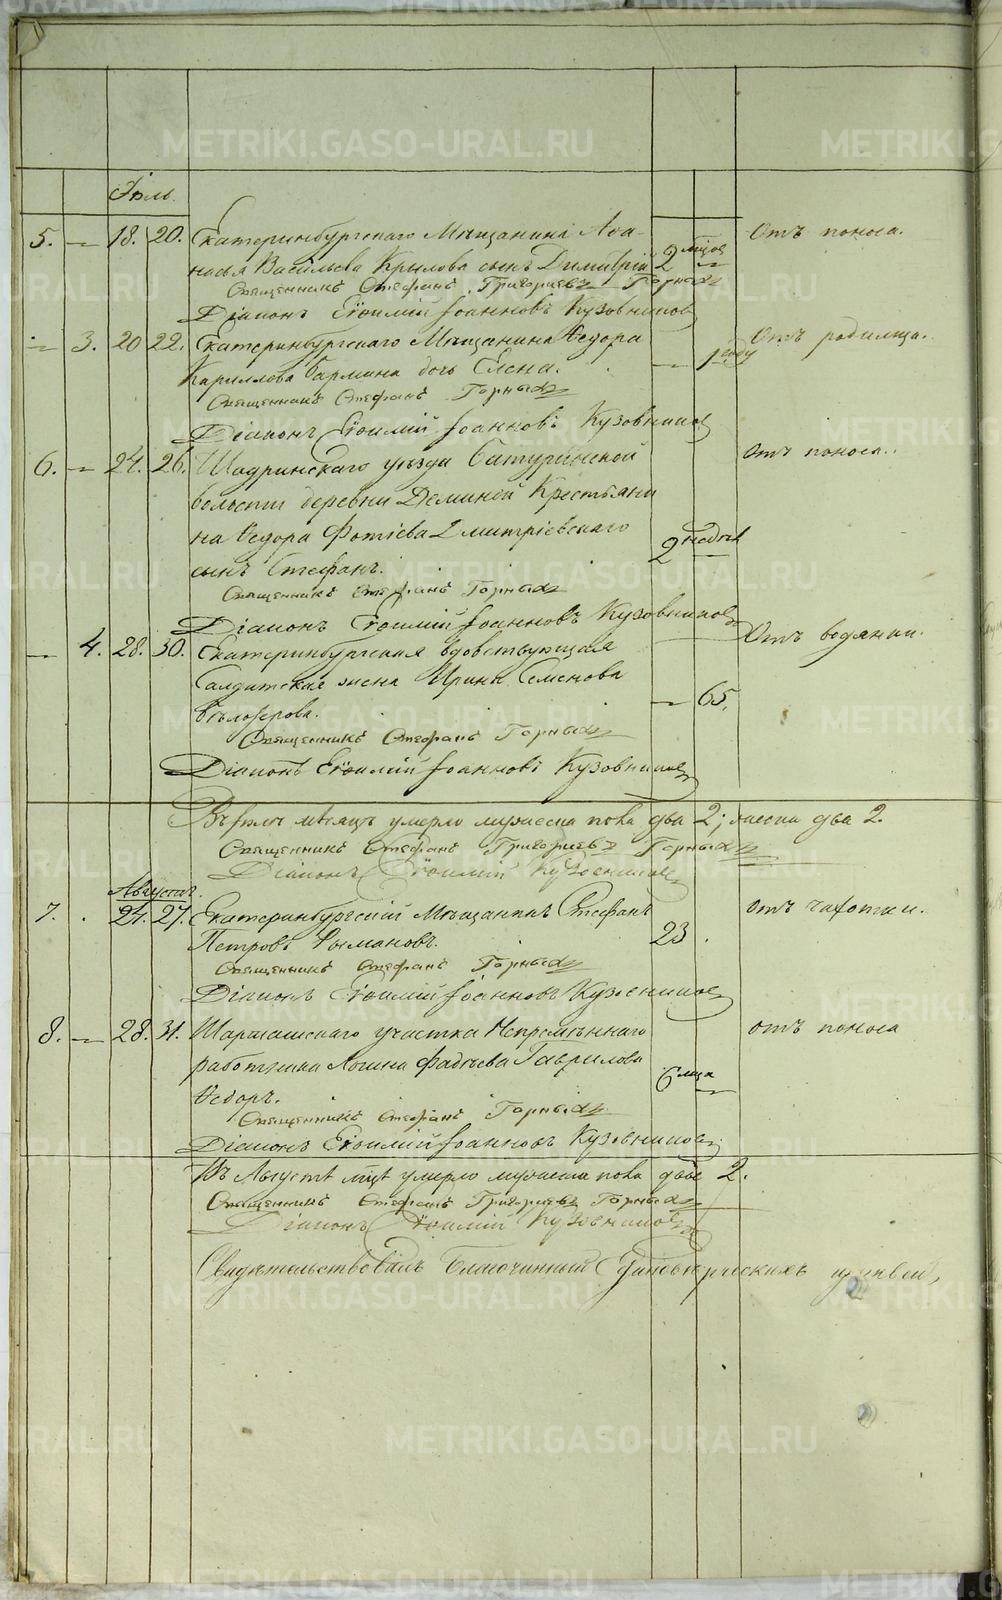 Іюль.
5. — 18. 20. Екатеринбургскаго Мѣщанина Афа- 2 мцов Отъ поноса.
насья Васильева Крылова сынъ Димитрій
Священникъ Стефанъ Григориевъ Горныхъ
Діаконъ Евфимій Іоанновъ Кузовниковъ
— 3. 20 22. Екатеринбургскаго Мѣщанина Ѳедора — 1 году Отъ родимца.
Кириллова дочь Елена.
Священникъ Стефанъ Горныхъ
Діаконъ Евфимій Іоанновъ Кузовниковъ
6. — 24. 26. Шадринскаго уѣзда Батуринской Отъ поноса.
волости деревни Деминой Крестьяни
на Ѳедора Фотіева Дмитріевскаго 2 недѣль
сынъ Стефанъ.
Священникъ Стефанъ Горныхъ
Діаконъ Евфимій Іоанновъ Кузовниковъ
— 4. 28. 30. Екатеринбургская вдовствующая Отъ водянки.
Салдатская жена Ирина Семенова — 65.
Бѣлозерова.
Священникъ Стефанъ Горныхъ
Діаконъ Евфимій Іоанновъ Кузовниковъ
Въ Іюлѣ мѣсяцѣ умерло мужеска пола два 2; женска два 2.
Священникъ Стефанъ Григориевъ Горныхъ
Діаконъ Евфимій Кузовниковъ
Августъ.
7. . 24. 27. Екатеринбургскій Мѣщанинъ Стефанъ 23. отъ чахотки.
Петровъ
Священникъ Стефанъ Горныхъ
Діаконъ Евфимій Іоанновъ Кузовниковъ
8. — 28. 31. Шарташскаго участка Непремѣннаго отъ поноса
работника Логина Фадѣева Гаврилова 6 мца
Ѳедоръ.
Священникъ Стефанъ Горныхъ
Діаконъ Евфимій Іоанновъ Кузовниковъ
Въ Августѣ мцѣ умерло мужеска пола двое 2.
Священникъ Стефанъ Григориевъ Горныхъ
Діаконъ Евфимій Кузовниковъ
Свидѣтельствовалъ Благочинный Единовѣрческихъ церквей,
METRIKI.GASO-URAL.RU